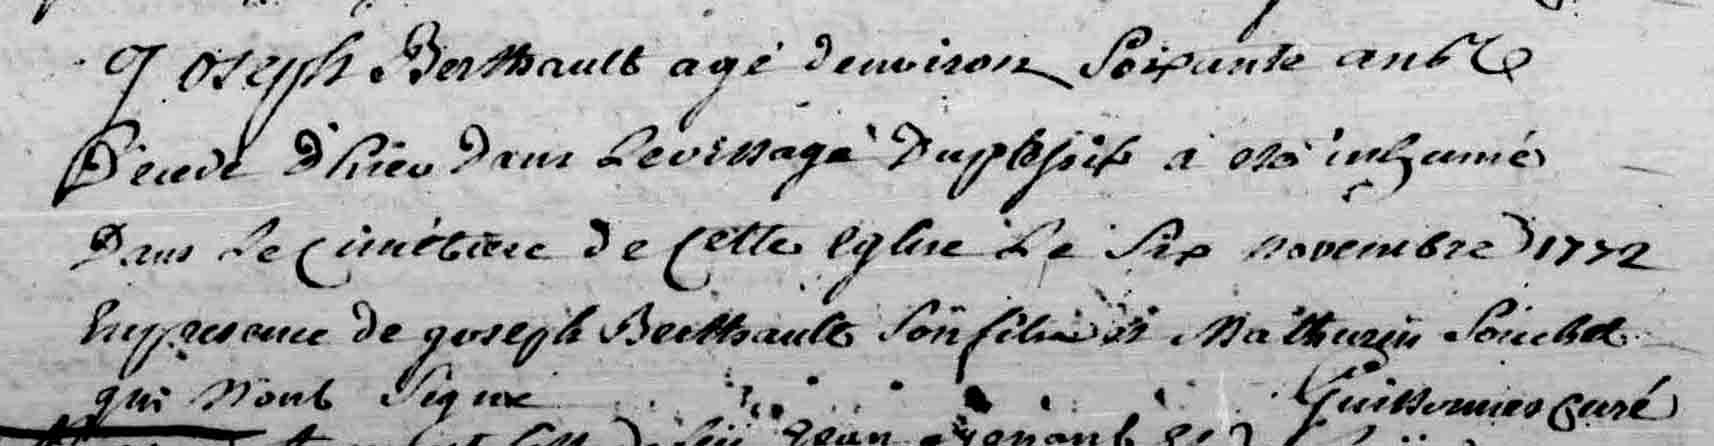 Joseph Berthault agé d'environ soixante ans et
Décédé d'hier dans le village Duplessix a eté inhumé
Dans le cimétiere de cette eglise le six novembre 1772
En presence de joseph Berthault son fils et Mathurin Souchet
qui n'ont signé Guissonnier curé